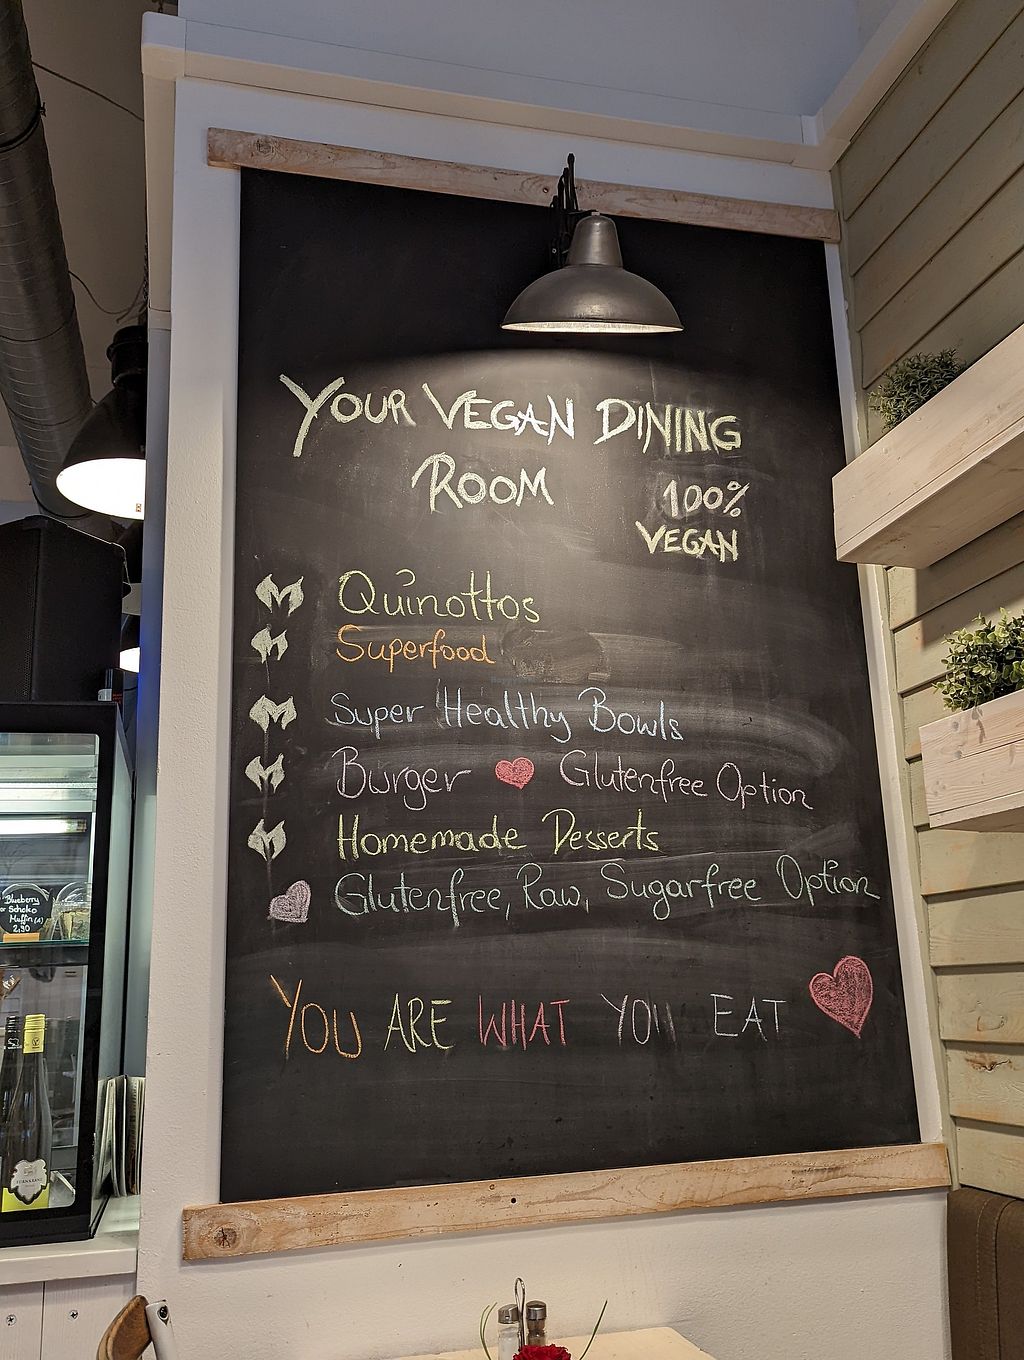 YOUR VEGAN DINING
ROOM
100%
VEGAN
Quinottos
Superfood
Super Healthy Bowls
Burger Glutenfree Option
Homemade Desserts
Glutenfree, Raw, Sugarfree Option
YOU ARE WHAT YOU EAT
Blueberry
Schoko
Muffin
2,90